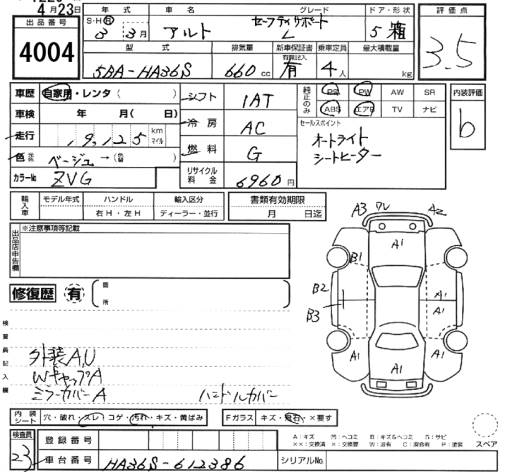 4月23日
出品番号
4004
年式 車名 グレード ドア・形状 評価点
S・H・R 3年 3月 アルト セーフティサポート L 5 箱 3.5
型式 排気量 新車保証書 有限記入 乗車定員 最大積載量
5BA-HA36S 660cc 有 4人 kg
車歴 自家用・レンタ ( ) シフト IAT 純正のみ PS PW AW SR 内装評価
車検 年 月( 日) 冷房 AC ABS エアB TV ナビ b
走行 19,125 km マイル セールスポイント
色 ベージュ → (色替) 燃料 G オートライト
シートヒーター
カラーNo ZVG リサイクル料金 6960円
輸入車 モデル年式 ハンドル 輸入区分 書類有効期限
右H・左H ディーラー・並行 月 日迄
出品店申告欄 ※注意事項等記載
修復歴 有 箇所
検査員記入欄
外装AU
WキャップA
ミラーカバーA ハンドルカバー
A3 A2
A1
B1 A1
B2 A1 A1
B3
A1 A1
A1
スペア
内装シート 穴・破れ・スレ・コゲ・汚れ・キズ・黄ばみ Fガラス キズ・飛石・×要す
検査員 23 登録番号
車台番号 HA36S-612386 シリアルNo
A:キズ U:ヘコミ B:キズ&ヘコミ S:サビ
××:交換済 ×:要交換 W:波有 C:腐食有 P:塗装